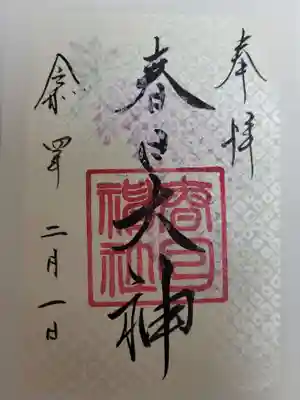 奉拝
春日大神
春日
神社
令四年二月一日